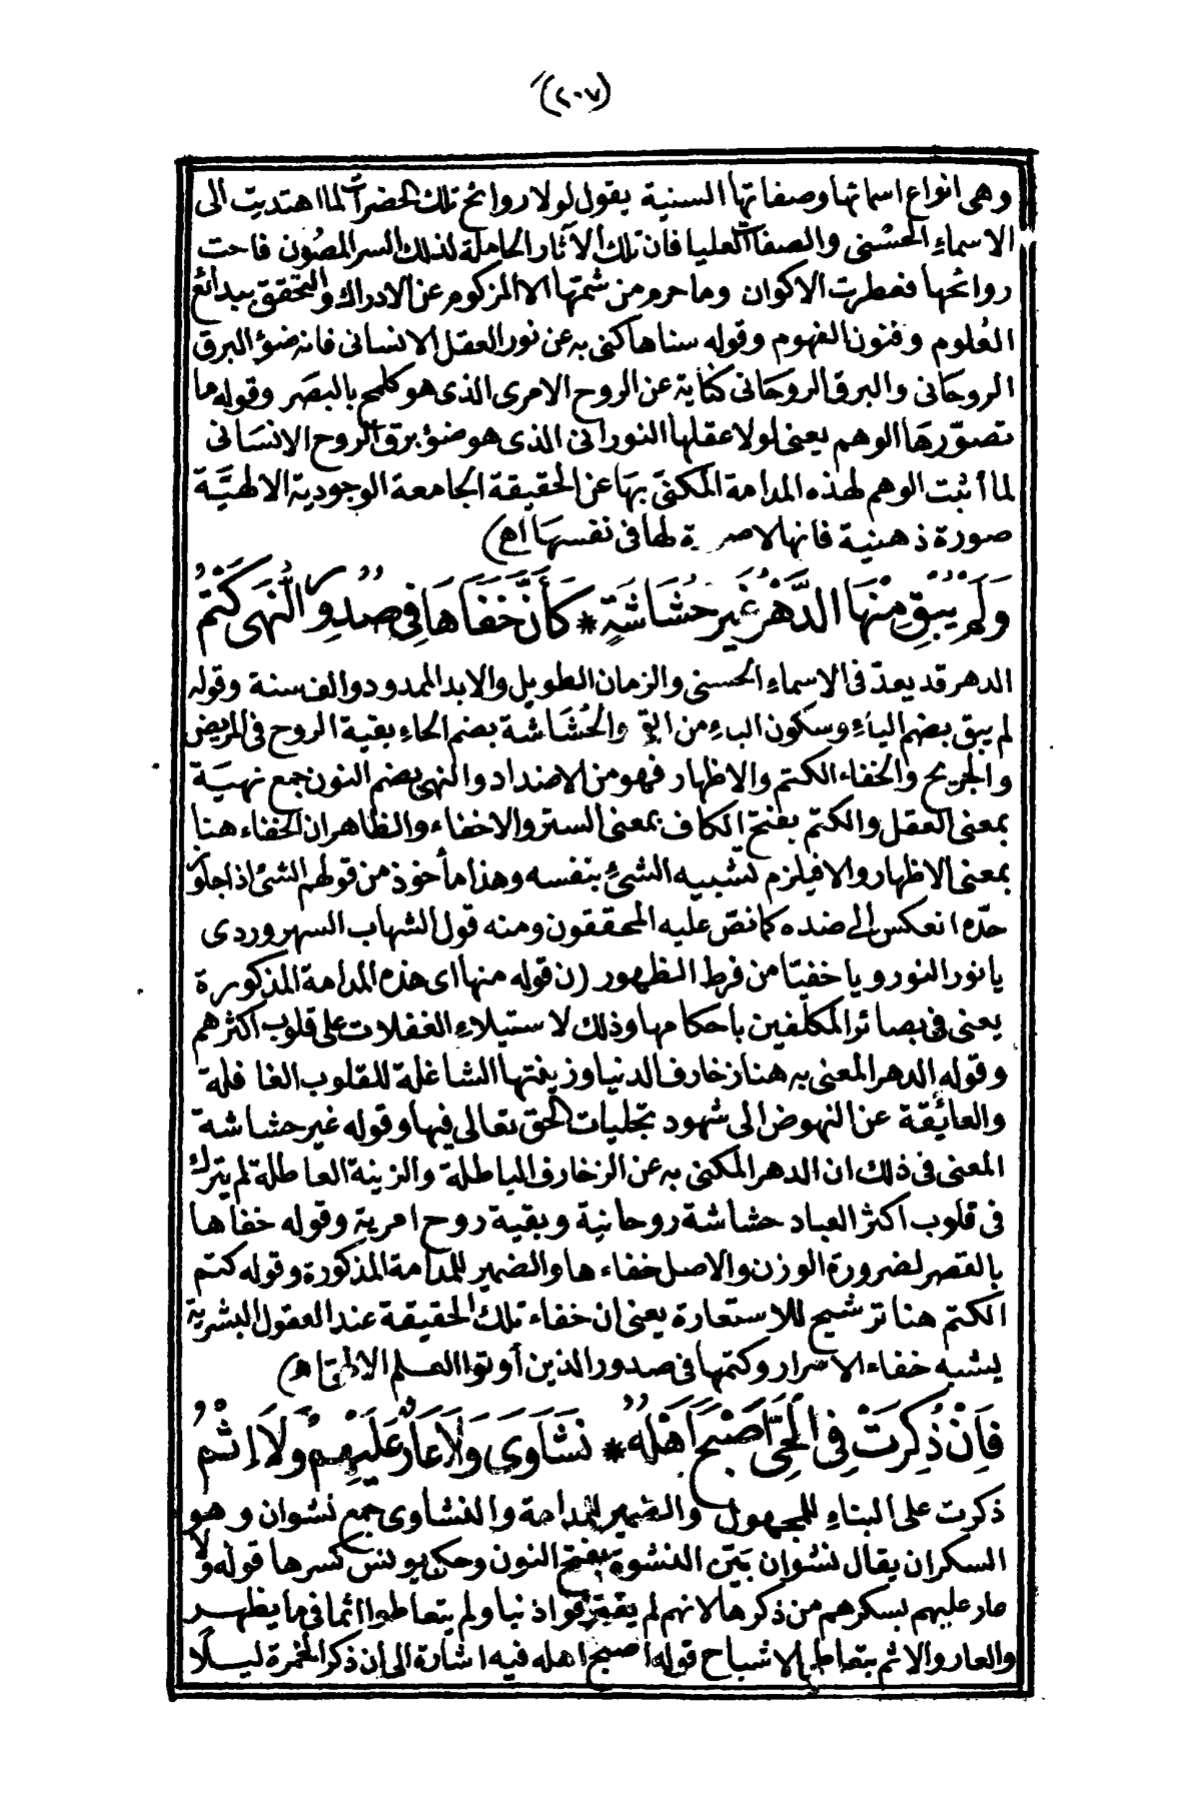 (٢٠٧)
وهى انواع اسمائها وصفاتها السنية يقول لولا روائح تلك الحضرات لما اهتديت الى
الاسماء الحسنى والصفات العليا فان تلك الآثار الحاملة لذلك السر المصون فاحت
روائحها فعطرت الاكوان وما حرم من شمتها الا المزكوم عن الادراك والتحقق ببدائع
العلوم وفنون الفهوم وقوله سناها كنى به عن نور العقل الانسانى فانه ضوء البرق
الروحانى والبرق الروحانى كناية عن الروح الامرى الذى هو كلمح بالبصر وقوله ما
تصوّرها الوهم يعنى لولا عقلها النورانى الذى هو ضوء برق الروح الانسانى
لما أثبت الوهم لهذه المدامة المكنىّ بها عن الحقيقة الجامعة الوجودية الالهيّة
صورة ذهنية فانها لا صورة لها فى نفسها اه)
وَلَمْ يُبْقِ مِنْهَا الدَّهْرُ غَيْرَ حُشَاشَةٍ * كَأَنَّ خَفَاهَا فِى صُدُورِ النُّهَى كَتْمُ
الدهر قد يعدّ فى الاسماء الحسنى والزمان الطويل والابد الممدود والف سنة وقوله
لم يبق بضم الياء وسكون الباء من ابقى والحُشَاشة بضم الحاء بقية الروح فى المريض
والجريح والخفاء الكتم والاظهار فهو من الاضداد والنهى بضم النون جمع نهيَة
بمعنى العقل والكتم بفتح الكاف بمعنى الستر والاخفاء والظاهر ان الخفاء هنا
بمعنى الاظهار والا فيلزم تشبيه الشئ بنفسه وهذا مأخوذ من قولهم الشئ اذا جاوز
حدّه انعكس الى ضده كما نصّ عليه المحققون ومنه قول الشهاب السهروردى
يا نور النور ويا خفيّا من فرط الظهور (ن قوله منها اى هذه المدامة المذكورة
يعنى فى بصائر المكلفين باحكامها وذلك لاستيلاء الغفلات على قلوب اكثرهم
وقوله الدهر المعنى به هنا زخارف الدنيا وزينتها الشاغلة للقلوب الغافلة
والعائقة عن النهوض الى شهود تجليات الحق تعالى فيها وقوله غير حشاشة
المعنى فى ذلك ان الدهر المكنى به عن الزخارف الباطلة والزينة العاطلة لم يترك
فى قلوب اكثر العباد حشاشة روحانية وبقية روح امرية وقوله خفاها
بالقصر لضرورة الوزن والاصل خفاءها والضمير للمدامة المذكورة وقوله كتم
الكتم هنا ترشيح للاستعارة يعنى ان خفاء تلك الحقيقة عند العقول البشرية
يشبه خفاء الاسرار وكتمها فى صدور الذين أوتوا العلم الالهىّ اه)
فَاِنْ ذُكِرَتْ فِى الْحَىِّ اَصْبَحَ اَهْلُهُ * نَشَاوَى وَلَا عَارٌ عَلَيْهِمْ وَلَا اِثْمُ
ذكرت على البناء للمجهول والضمير للمدامة والنشاوى جمع نشوان وهو
السكران يقال نشوان بَيّن النشوة بفتح النون وحكى يونس كسرها قوله ولا
عار عليهم بسكرهم من ذكرها لانهم لم يقترفوا ذنبا ولم يتعاطوا اثما فى ما يظهر
والعار والاثم بتعاطى الاشباح قوله اصبح اهله فيه اشارة الى ان ذكر الخمرة ليلًا